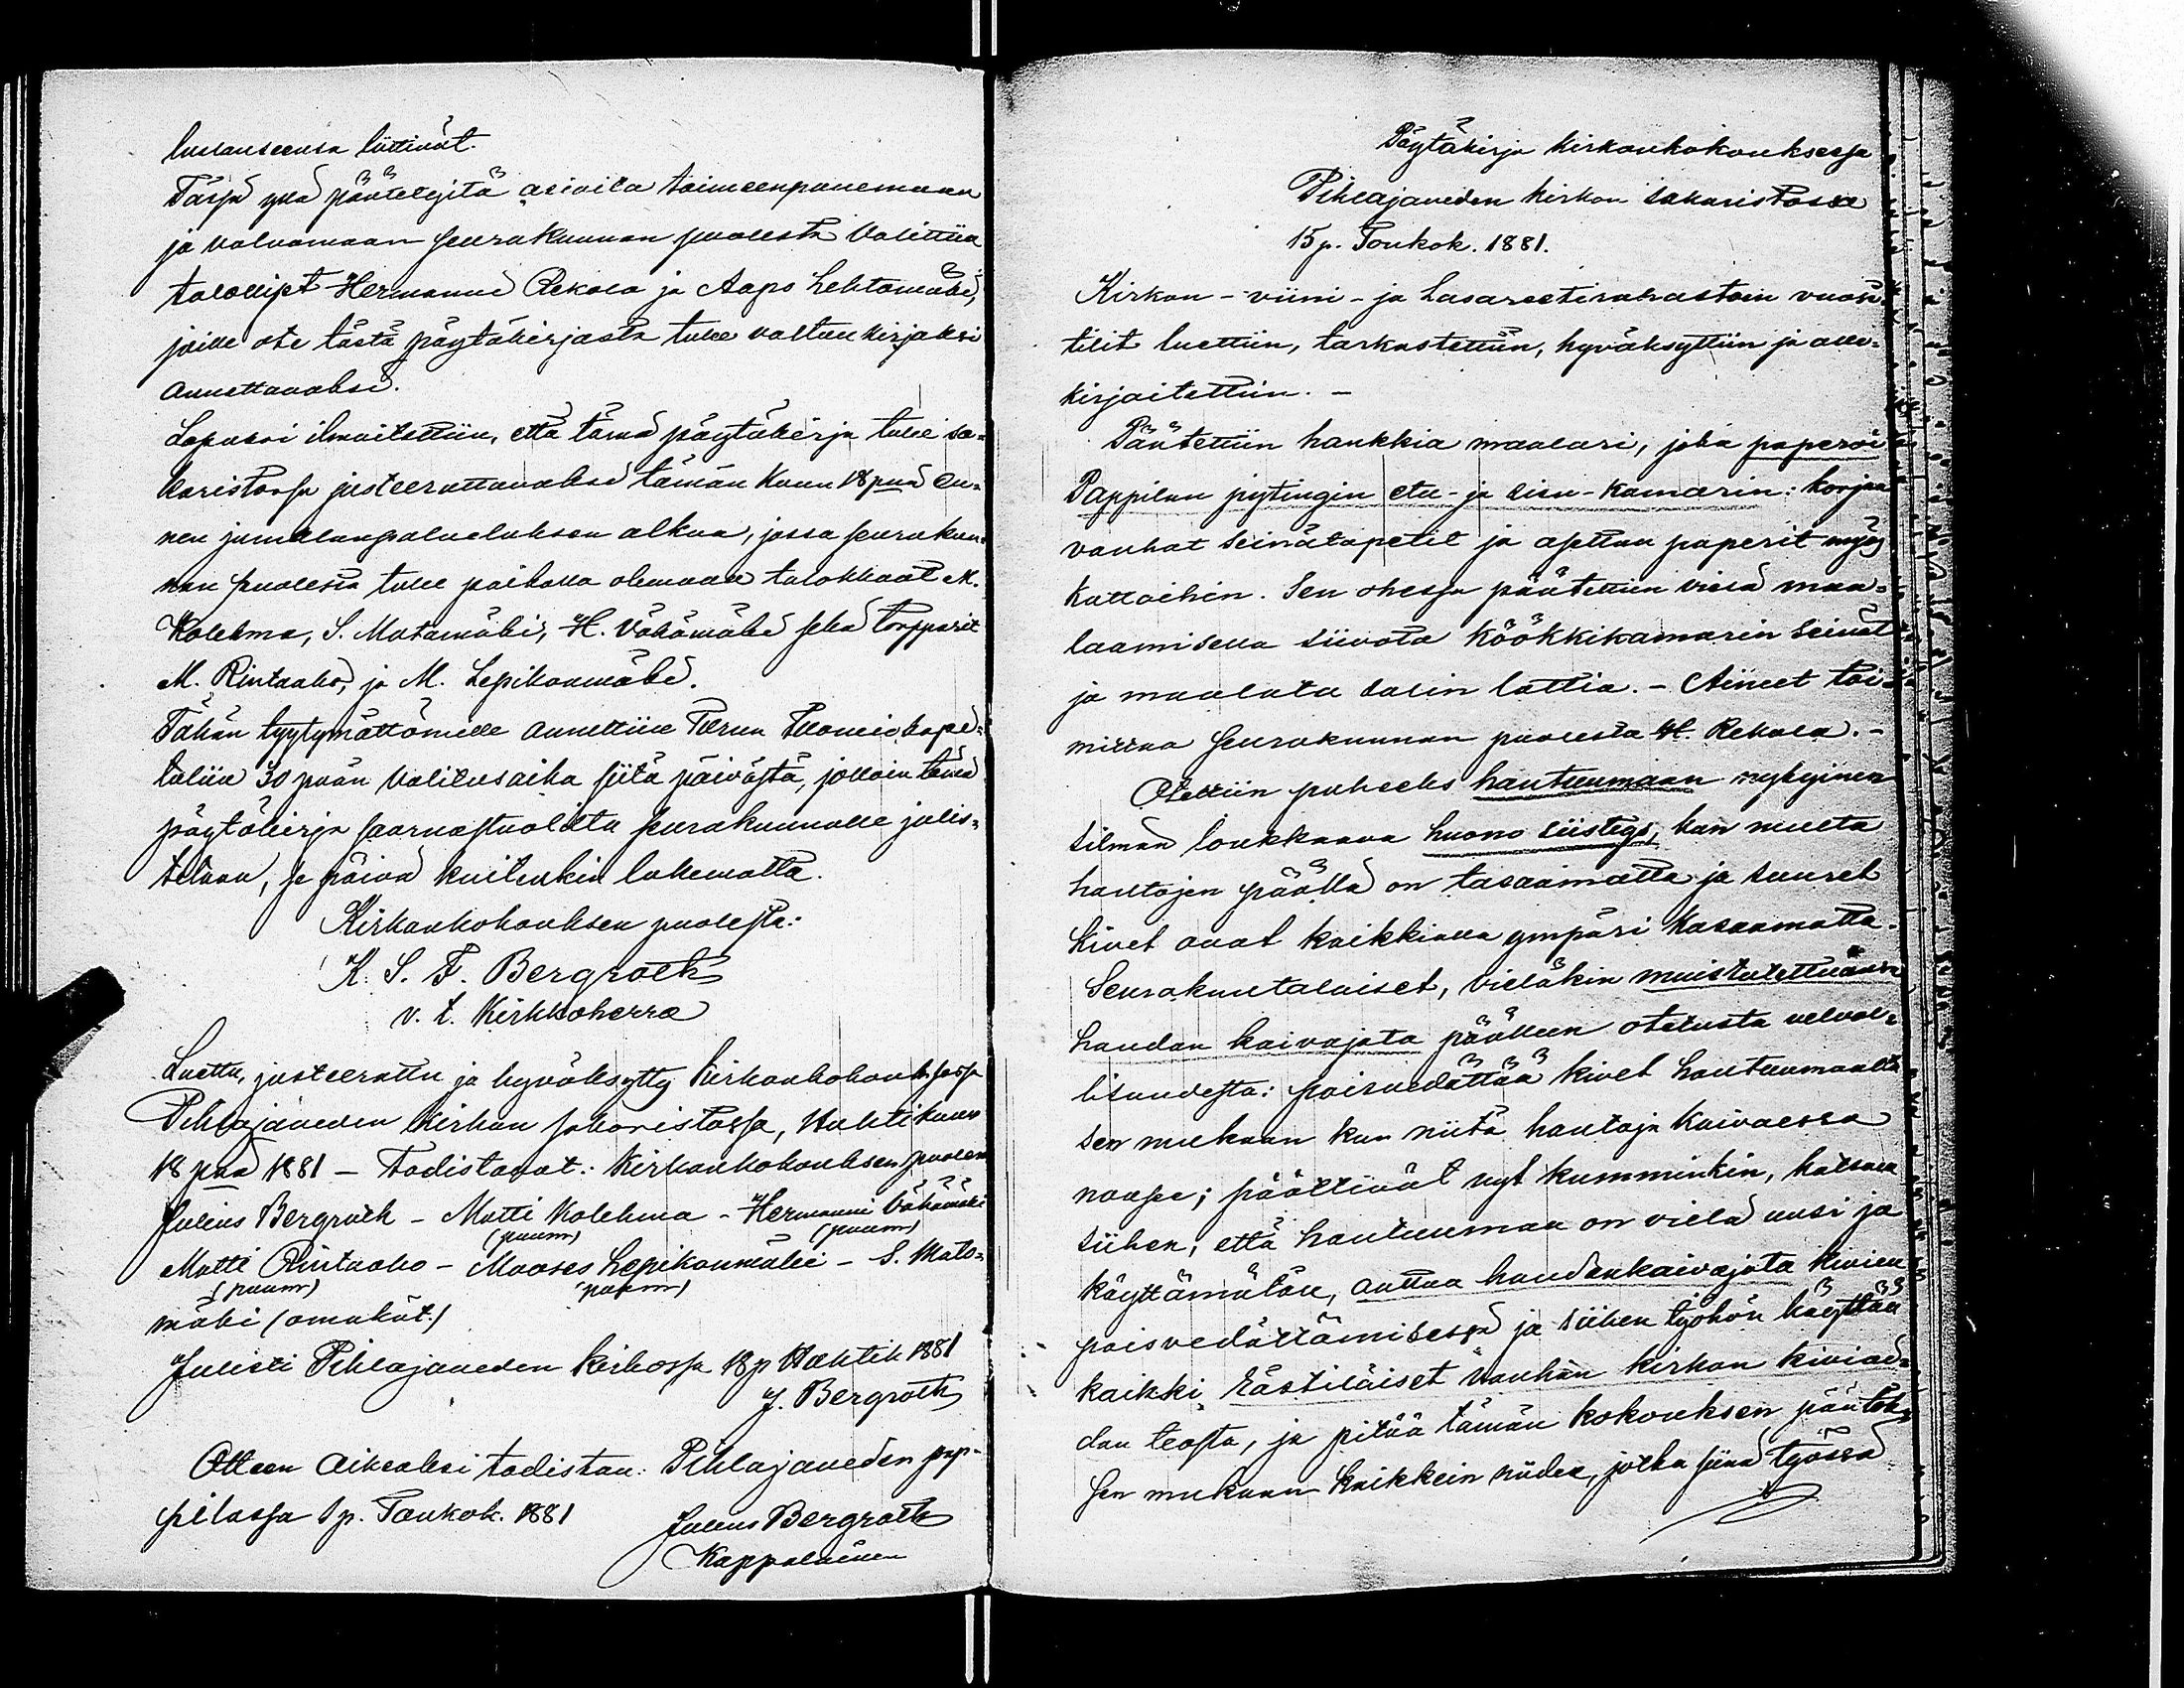 lussauseensa liittivät.
Tässä yllä päätettyjä asioita toimeenpanemaan
ja valvomaan seurakunnan puolesta valittiin
talolliset Hermanni Rekola ja Aapo Lehtomäki,
joille ote tästä pöytäkirjasta tulee valtuuskirjaksi
annettavaksi.
Lopuksi ilmoitettiin, että tämä pöytäkirja tulee sa-
karistossa justeerattavaksi tämän kuun 18 pnä en-
nen jumalanpalveluksen alkua, jossa seurakun-
nan puolesta tulee paikalla olemaan talokkaat M.
Kolehma, S. Matomäki, H. Vähämäki sekä torpparit
M. Rintaaho, ja M. Lepikonmäki.
Tähän tyytymättömille annettiin Turun Tuomiokapi-
tuliin 30 päivän valitusaika siitä päivästä, jolloin tämä
pöytäkirja saarnastuolista seurakunnalle julis-
tetaan, se päivä kuitenkin lukematta.
Kirkonkokouksen puolesta:
K. S. F. Bergroth
v. t. Kirkkoherra
Luettu, justeerattu ja hyväksytty Kirkonkokouksessa
Pihlajaveden Kirkon sakaristossa, Huhtikuun
18 pnä 1881 – Todistavat: Kirkonkokouksen puolesta
Julius Bergroth – Matti Kolehma – Hermanni Vähämäki
(puum) (puum)
Matti Rintaaho – Mooses Lepikonmäki – S. Mato-
(puum) (puum)
mäki (omakät.)
Julisti Pihlajaveden Kirkossa 18 p Huhtik 1881
J. Bergroth
Otteen oikeaksi todistaa: Pihlajaveden pap-
pilassa 1 p. Toukok. 1881
Julius Bergroth
Kappalainen
Pöytäkirja kirkonkokouksessa
Pihlajaveden kirkon sakaristossa
15 p. Toukok. 1881.
Kirkon- viini- ja Lasareetirahastoin vuosi-
tilit luettiin, tarkastettiin, hyväksyttiin ja alle-
kirjoitettiin. –
Päätettiin hankkia maalari, joka paperoi
Pappilan pytingin etu- ja sisu-kamarin: korjaa
vanhat seinätapetit ja asettaa paperit myös
kattoihin. Sen ohessa päätettiin vielä maa-
laamisella siivota köökkikamarin seinät
ja maalata salin lattia. – Aineet toi-
mittaa seurakunnan puolesta H. Rekola. –
Otettiin puheeks hautuumaan nykyinen
silmää loukkaava huono siisteys, kun multa
hautojen päällä on tasaamatta ja suuret
kivet ovat kaikkialla ympäri kasaamatta.
Seurakuntalaiset, vieläkin muistutettuansa
haudan kaivajata päälleen otetusta velvol-
lisuudesta: poisvedättää kivet hautuumaalta
sen mukaan kun niitä hautoja kaivaessa
nousee; päättivät nyt kumminkin, katsoen
siihen, että hautuumaa on vielä uusi ja
käyttämätön, auttaa haudankaivajata kivien
poisvedättämisessä ja siihen työhön käyttää
kaikki rästiläiset vanhan kirkon kiviai-
dan teosta, ja pitää tämän kokouksen päätök-
sen mukaan kaikkein niiden, jotka siinä työssä